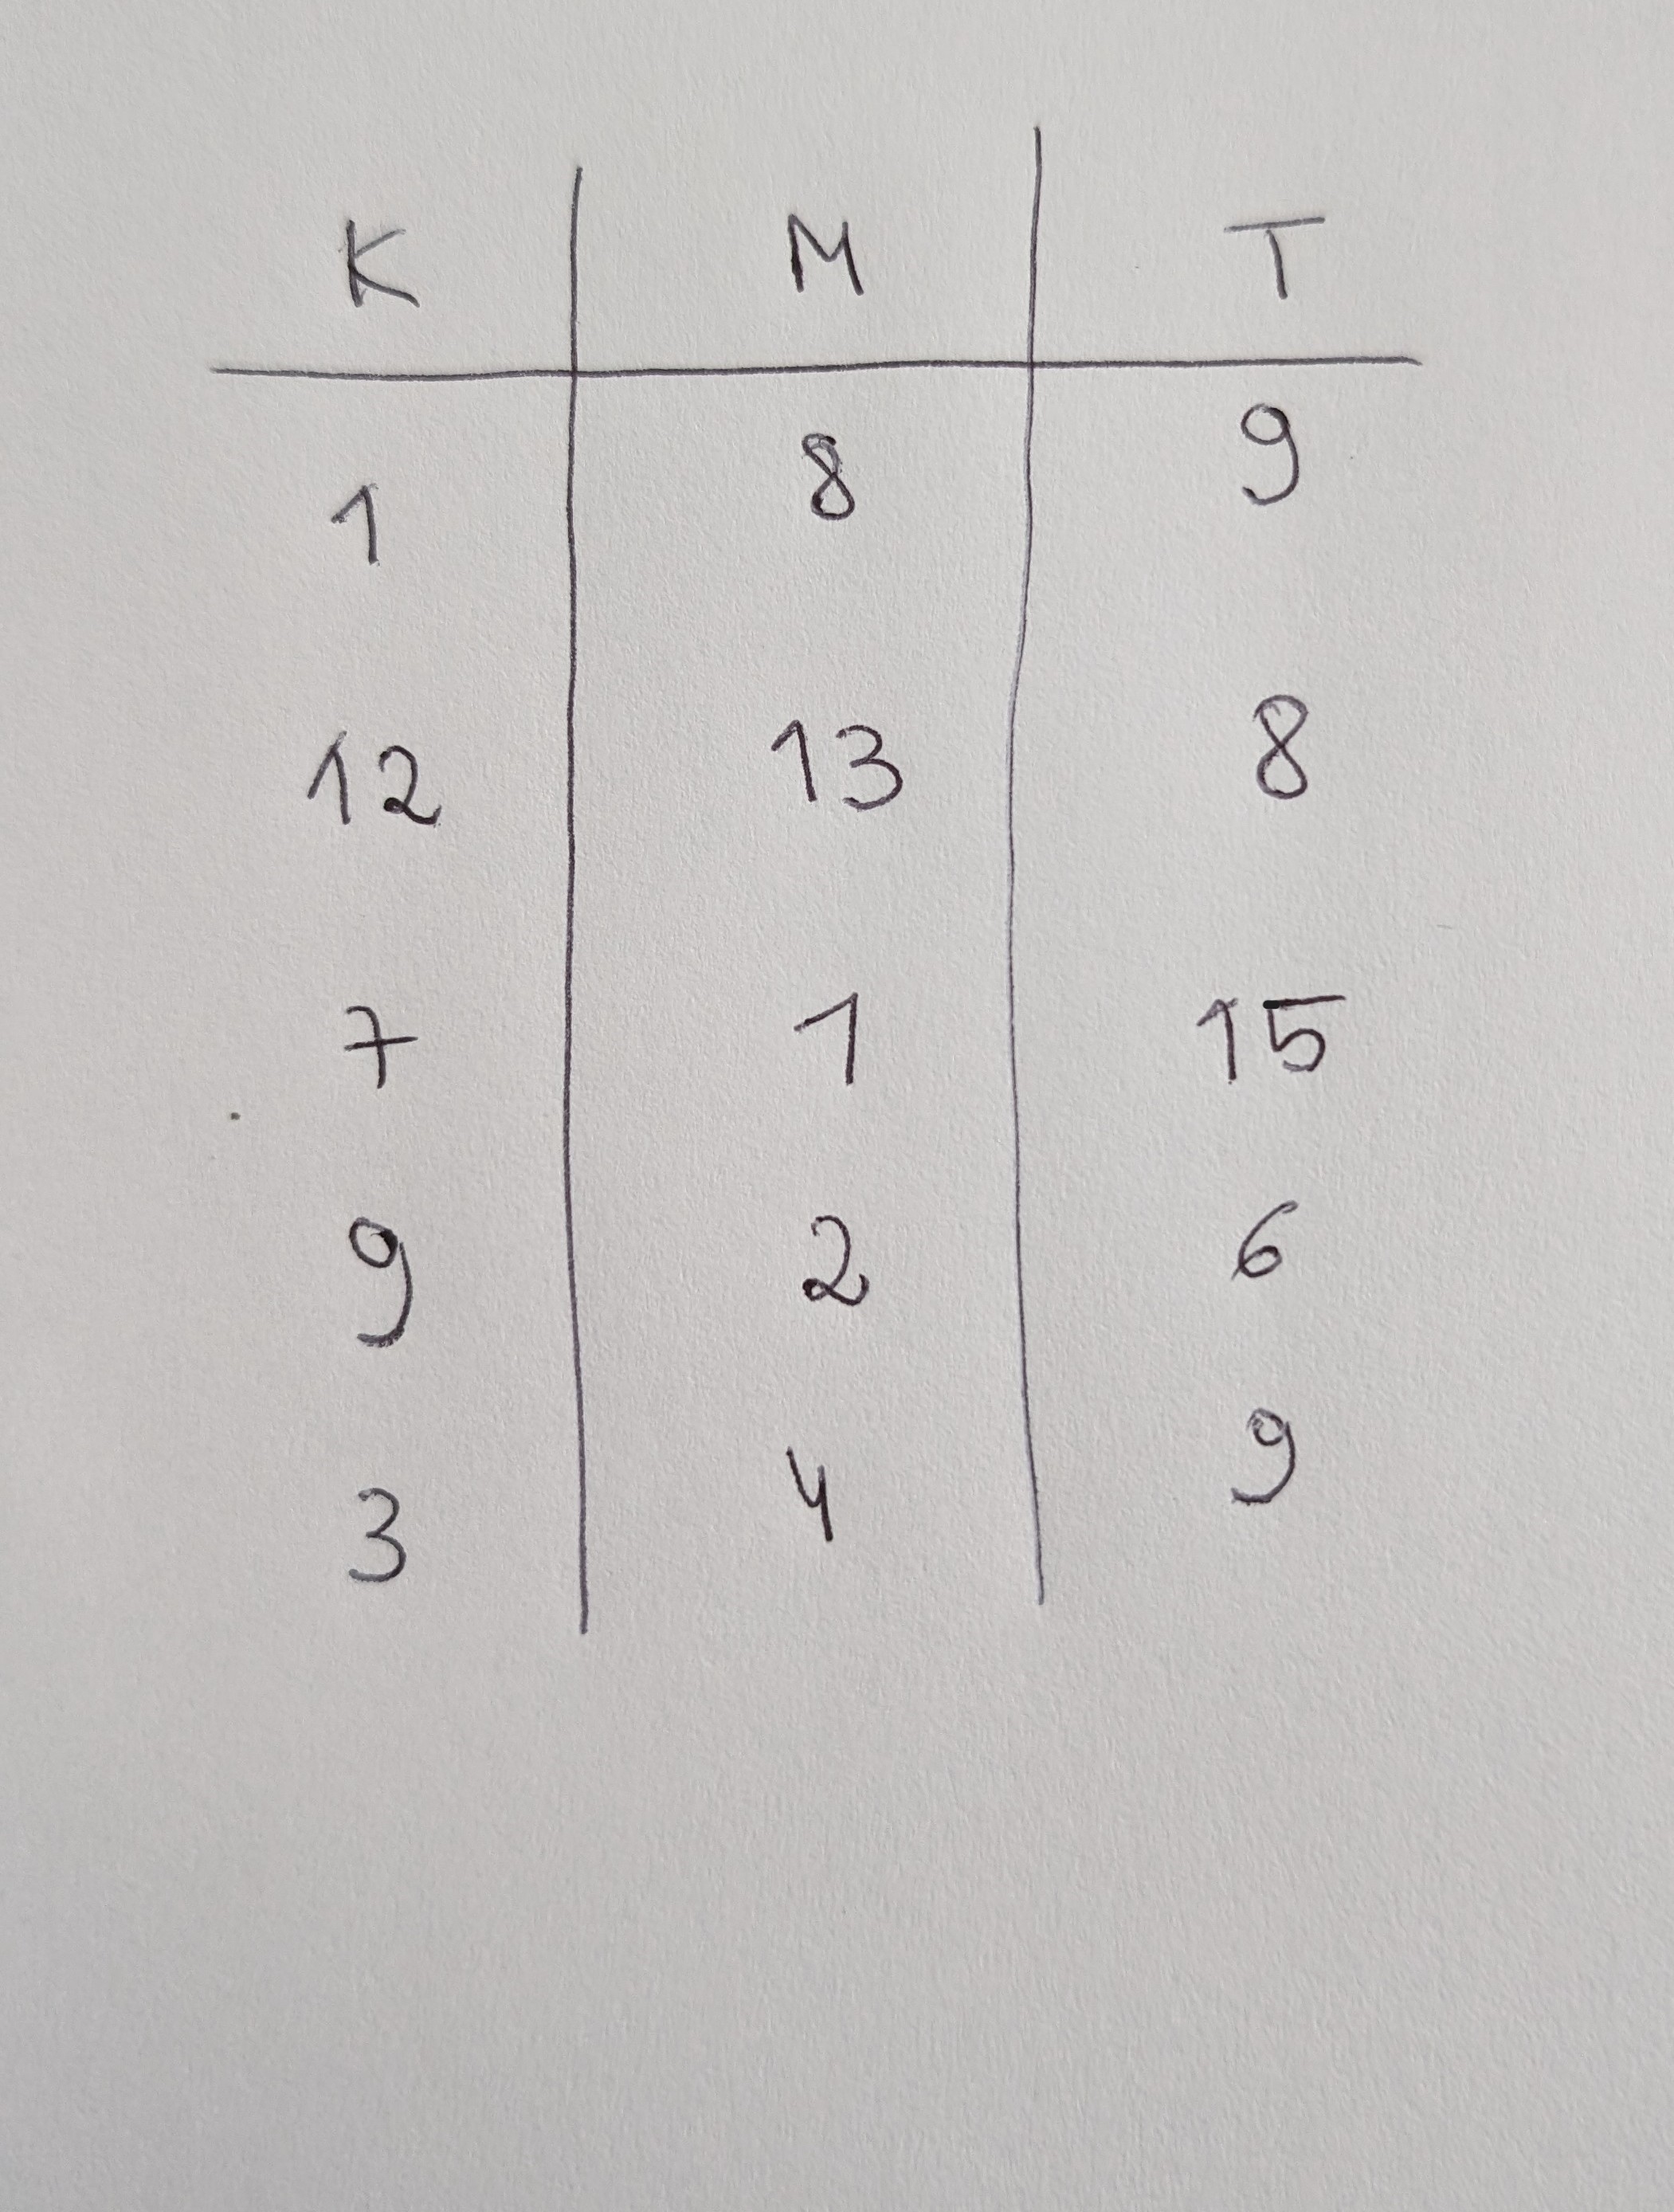 K M T
1 8 9
12 13 8
7 1 15
9 2 6
3 4 9